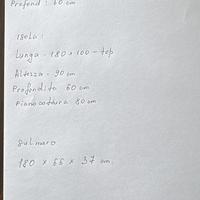 Profond : 60 cm
Isola :
Lunga - 180 x 100 - top
Altezza - 90 cm
Profondita 60 cm
Piano cottura 80 cm
180 x 55 x 37 cm